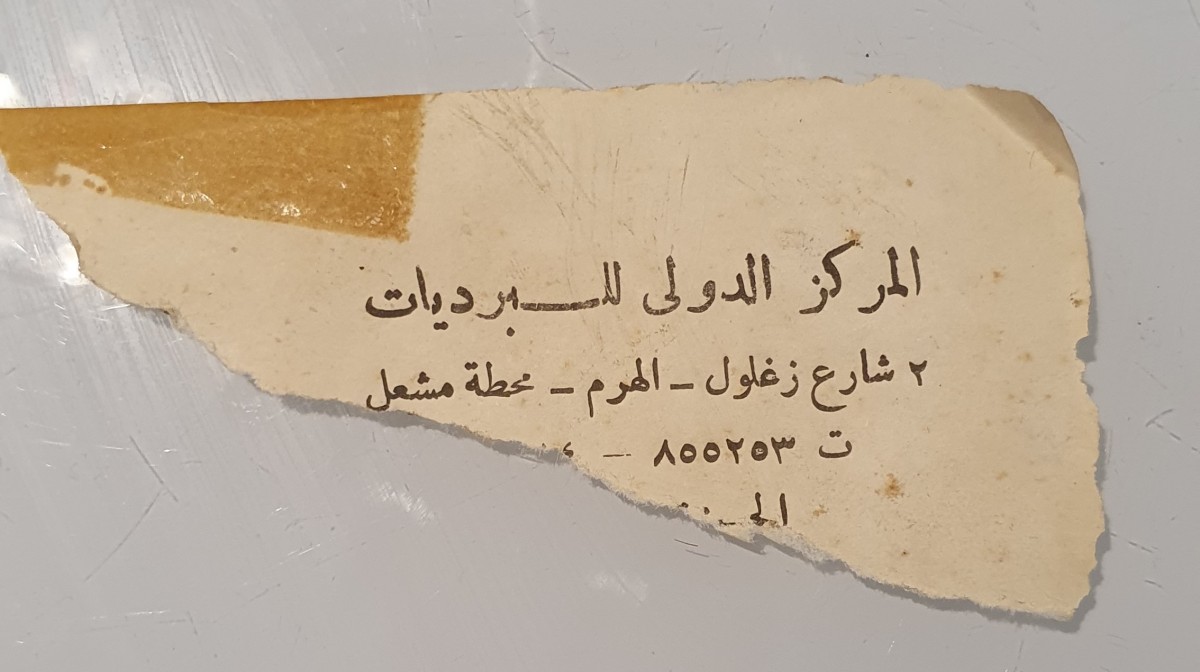 المركز الدولى للبرديات
٢ شارع زغلول - الهرم - محطة مشعل
ت ٨٥٥٢٥٣ -